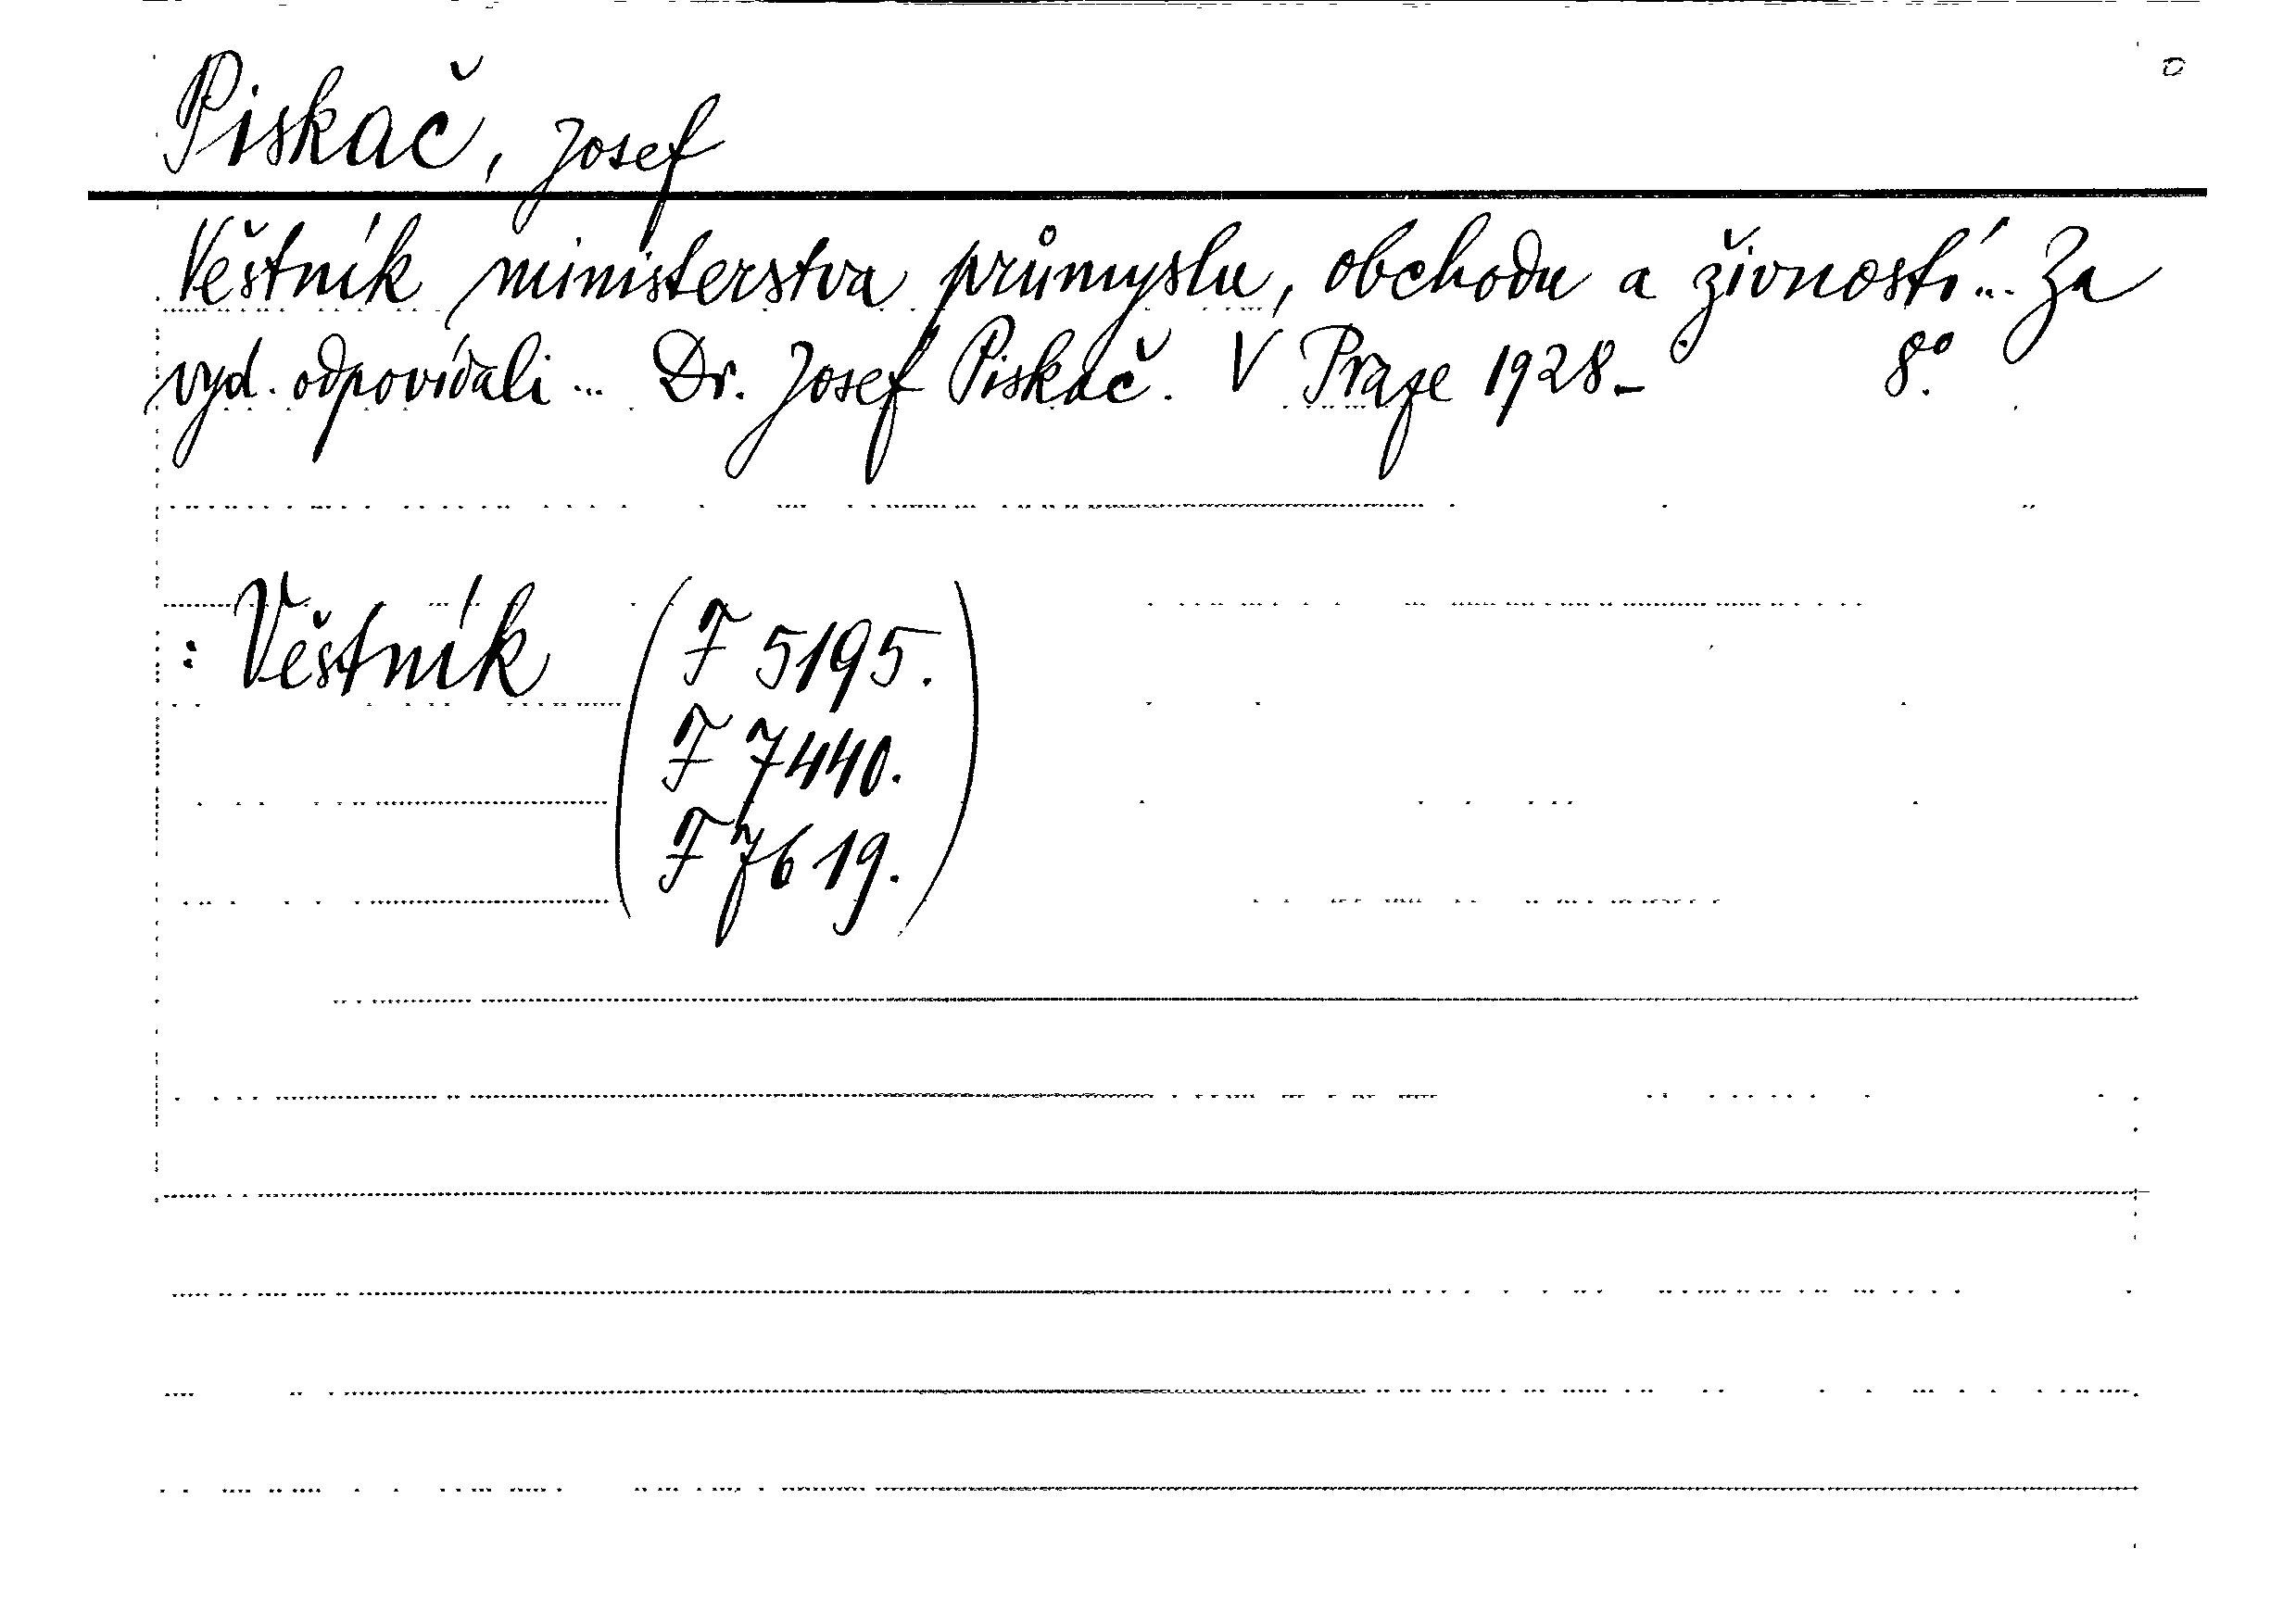 Piskač, Josef
Věstník ministerstva průmyslu, obchodu a živností... Za
vyd. odpovídali... Dr. Josef Piskač. V Praze 1928- 8°.
: Věstník (F 5195.
F 7440.
F 7619.)